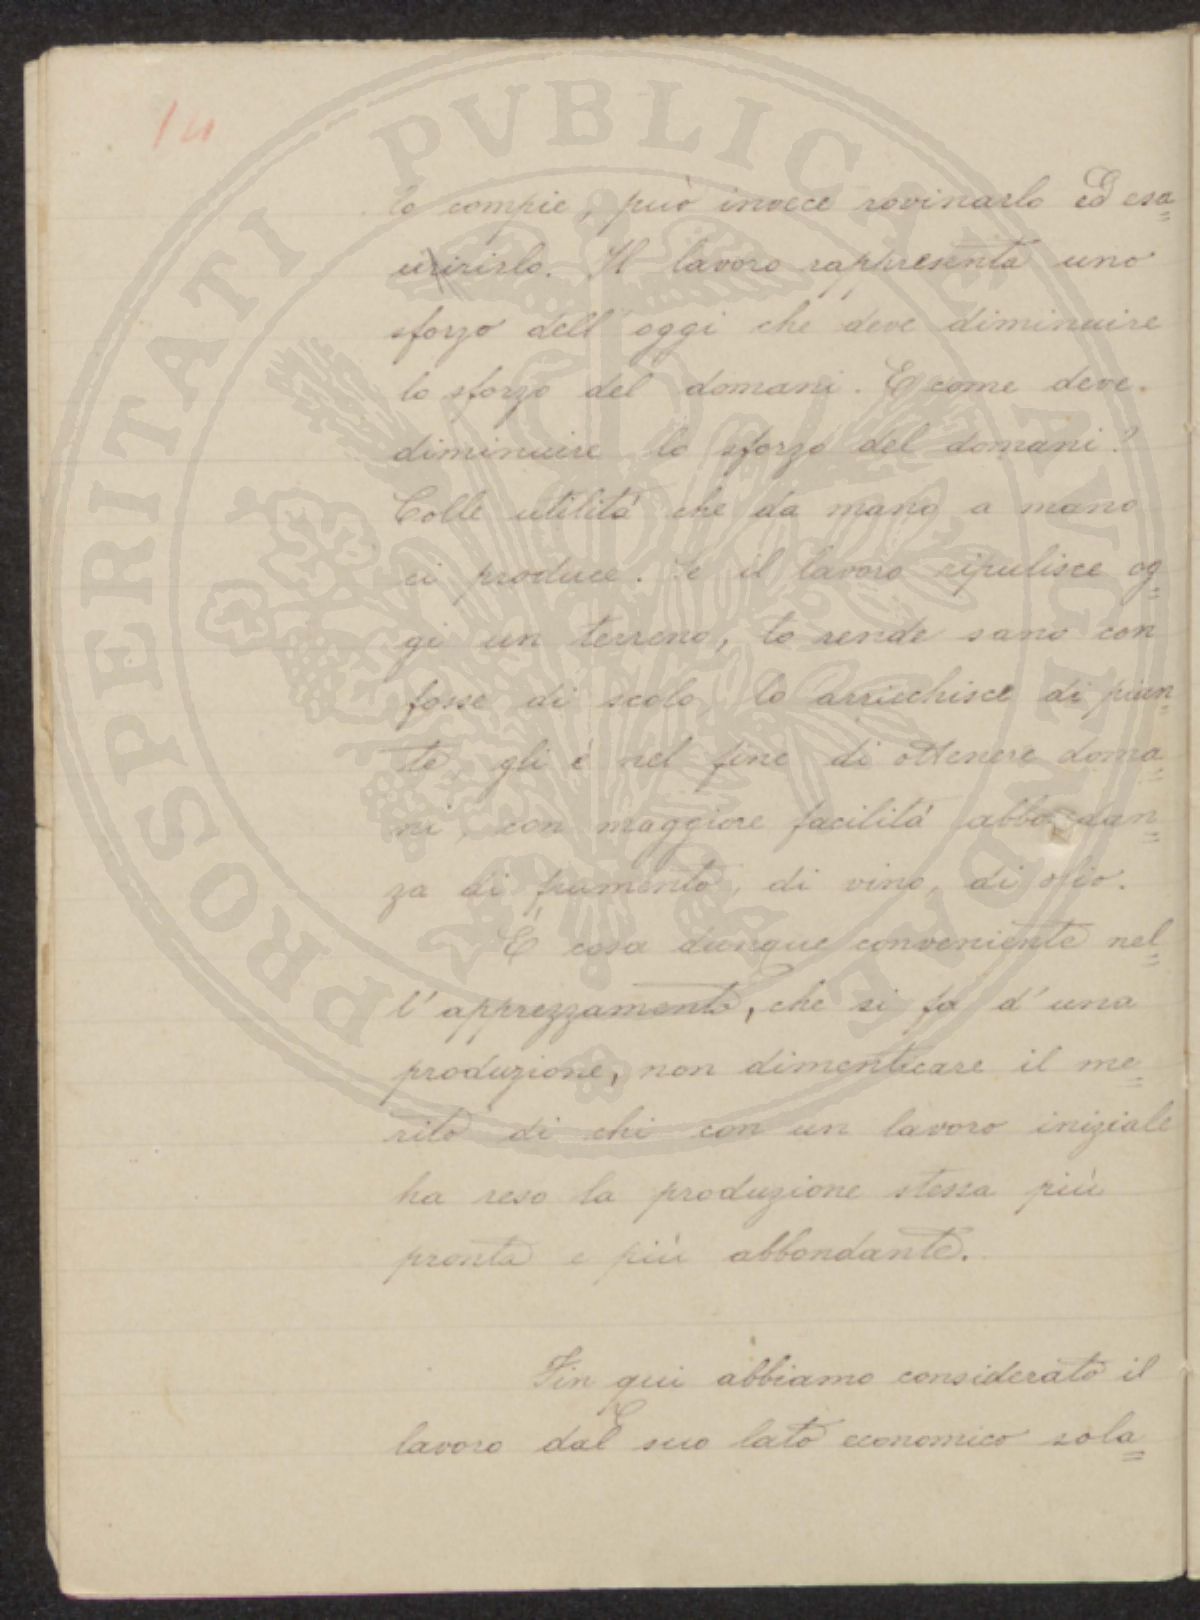 14
PROSPERITATI PVBLICAE AVGENDAE
lo compie, può invece rovinarlo ed esa=
urirlo. Il lavoro rappresenta uno
sforzo dell'oggi che deve diminuire
lo sforzo del domani. E come deve
diminuire lo sforzo del domani?
Colle utilità che da mano a mano
ci produce. Se il lavoro ripulisce og=
gi un terreno, lo rende sano con
fosse di scolo, lo arricchisce di pian=
te, gli è nel fine di ottenere doma=
ni con maggiore facilità abbondan=
za di frumento, di vino, di olio.
È cosa dunque conveniente nel=
l'apprezzamento, che si fa d'una
produzione, non dimenticare il me=
rito di chi con un lavoro iniziale
ha reso la produzione stessa più
pronta e più abbondante.
Fin qui abbiamo considerato il
lavoro dal suo lato economico sola=